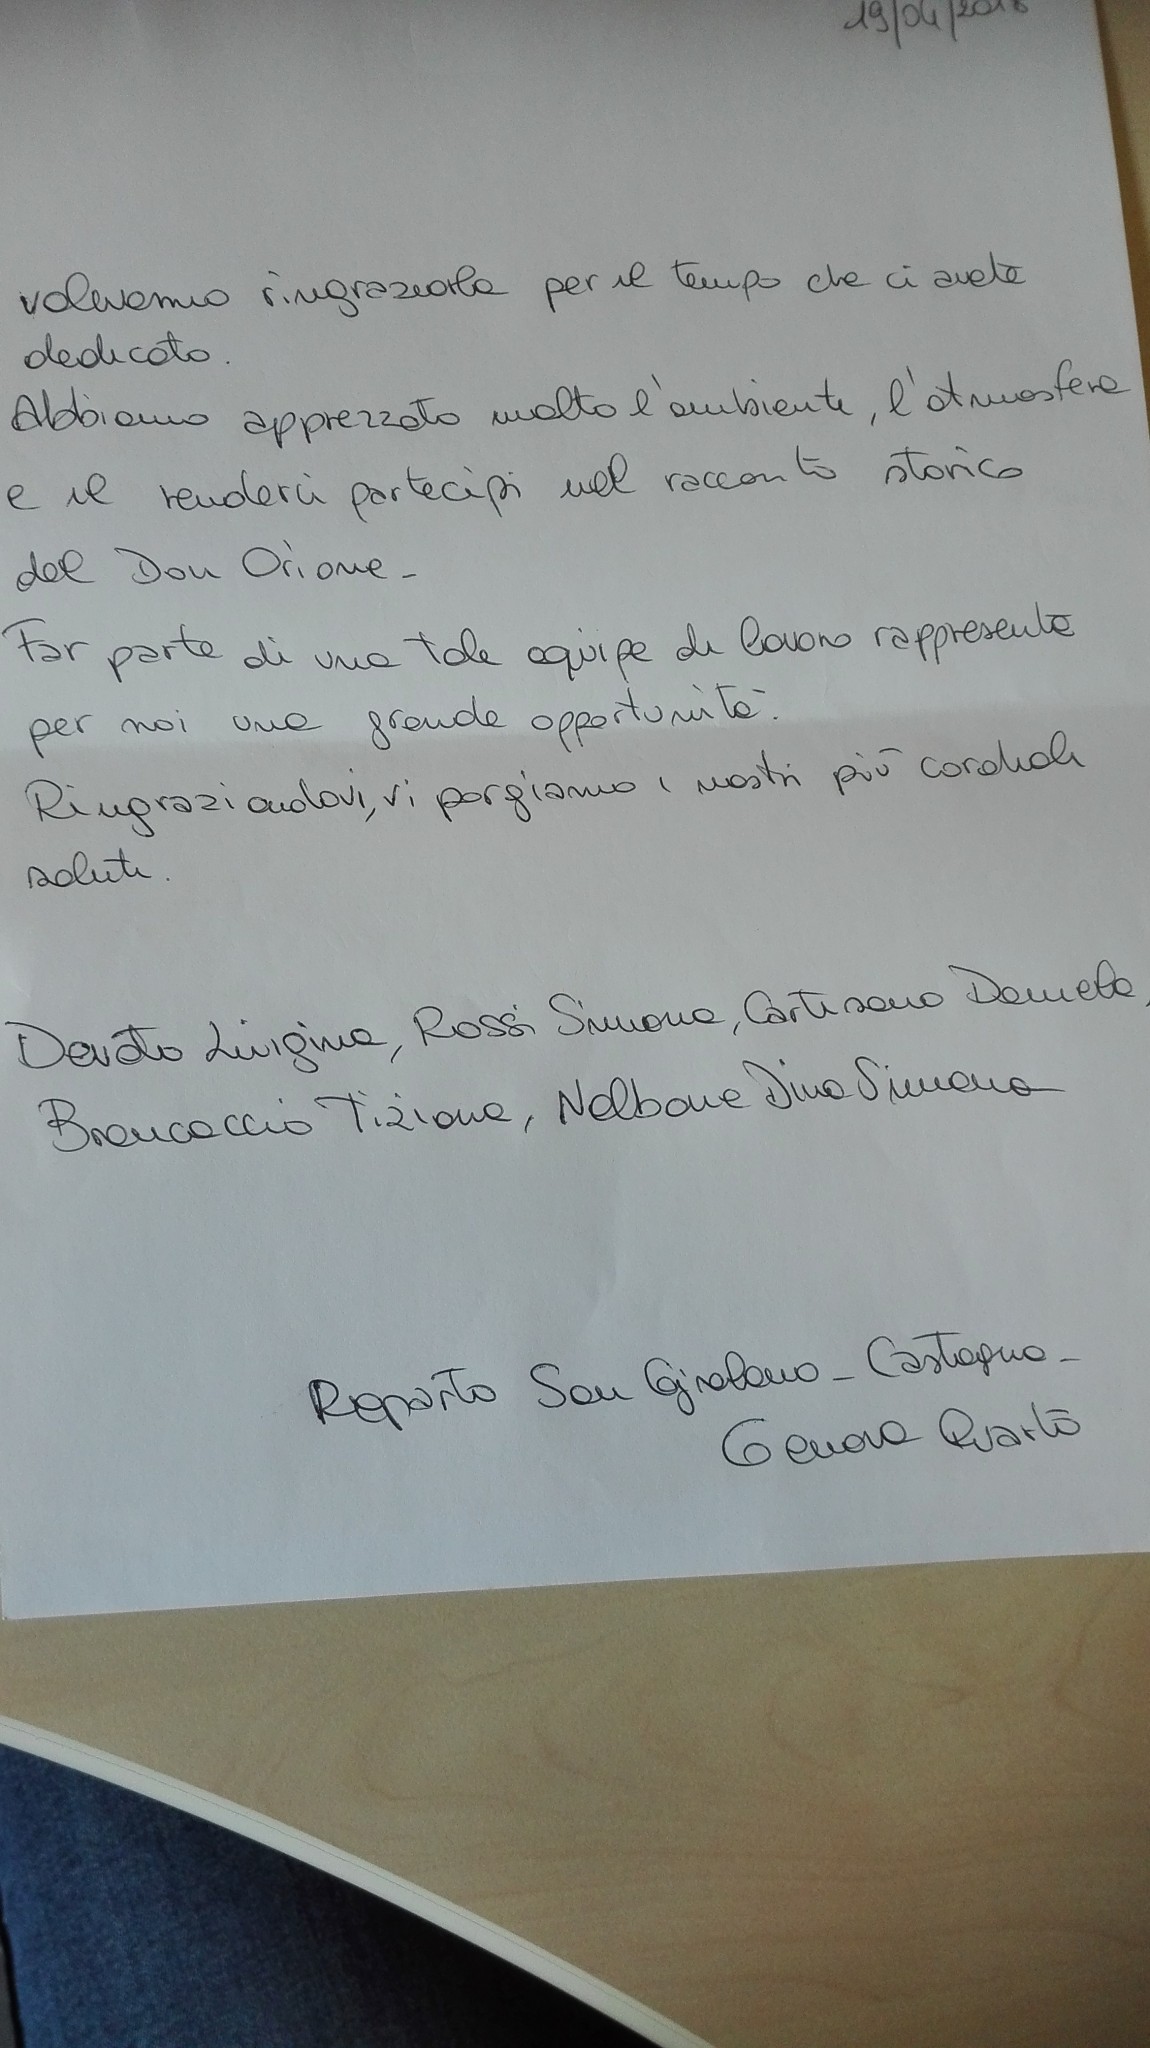 19/04/2018
volevamo ringraziarla per il tempo che ci avete
dedicato.
Abbiamo apprezzato molto l'ambiente, l'atmosfera
e il renderci partecipi nel racconto storico
del Don Orione-
Far parte di una tale equipe di lavoro rappresenta
per noi una grande opportunità.
Ringraziandovi, vi porgiamo i nostri più cordiali
saluti.
Devoto Luigina, Rossi Simona, Cartisano Daniela,
Brancaccio Tiziana, Nalbone Dina Simona
Reparto San Girolamo - Castagna -
Genova Quarto